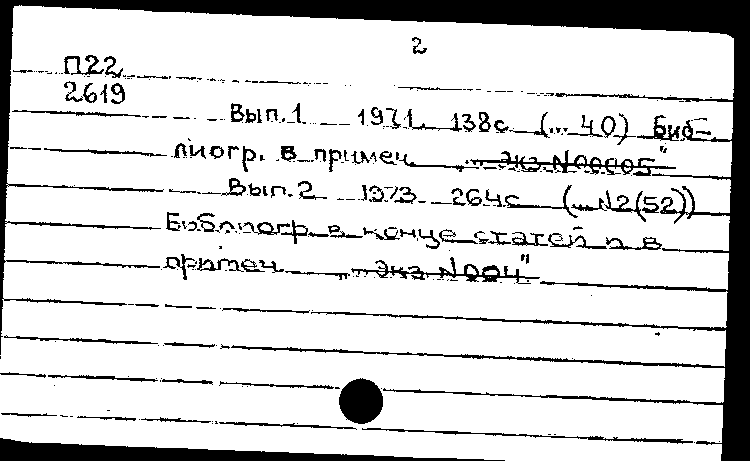 2
П22
2619
Вып. 1 1971. 138с (... 40) Биб-
лиогр. в примеч. „... Экз. N00005"
Вып. 2 1973 264с (... N2(52))
Библиогр. в конце статей и в
примеч „... Экз. N004"